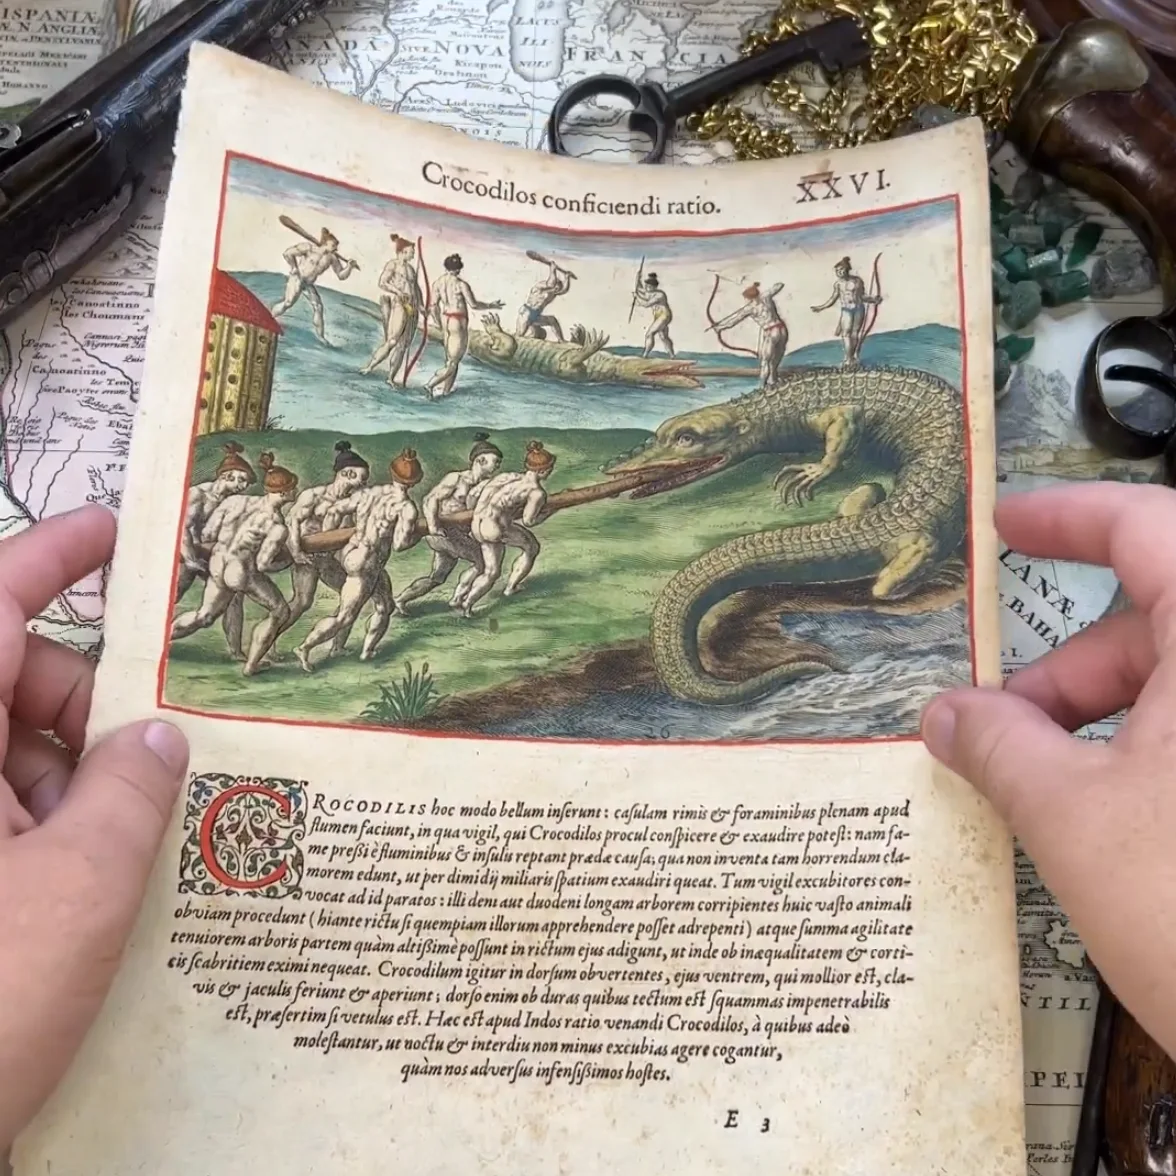 HISPANIÆ
N ANGLIÆ
CANADA
SIVE NOVA
FRANCIA
LACUS
ILI
Crocodilos conficiendi ratio.
XXVI.
26
CROCODILIS hoc modo bellum inferunt: caſulam rimis & foraminibus plenam apud
flumen faciunt, in qua vigil, qui Crocodilos procul conſpicere & exaudire poteſt: nam fa-
me preßi è fluminibus & inſulis reptant prædæ cauſa; qua non inventa tam horrendum cla-
morem edunt, ut per dimidij miliaris ſpatium exaudiri queat. Tum vigil excubitores con-
vocat ad id paratos: illi deni aut duodeni longam arborem corripientes huic vaſto animali
obviam procedunt (hiante rictu ſi quempiam illorum apprehendere poſſet adrepenti) atque ſumma agilitate
tenuiorem arboris partem quàm altißimè poſſunt in rictum ejus adigunt, ut inde ob inæqualitatem & corti-
cis ſcabritiem eximi nequeat. Crocodilum igitur in dorſum obvertentes, ejus ventrem, qui mollior eſt, cla-
vis & jaculis feriunt & aperiunt; dorſo enim ob duras quibus tectum eſt ſquammas impenetrabilis
eſt, præſertim ſi vetulus eſt. Hæc eſt apud Indos ratio venandi Crocodilos, à quibus adeò
moleſtantur, ut noctu & interdiu non minus excubias agere cogantur,
quàm nos adverſus infenſißimos hoſtes.
E 3
LANÆ
BAHA